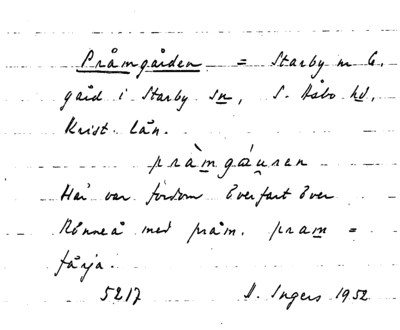 Pråmgården = Starby nr 6,
gård i Starby sn, S. Åsbo hd,
Krist. län.
pràmgáuren
Här var fordom överfart över
Rönneå med pråm. pram =
färja.
5217 I. Ingers 1952